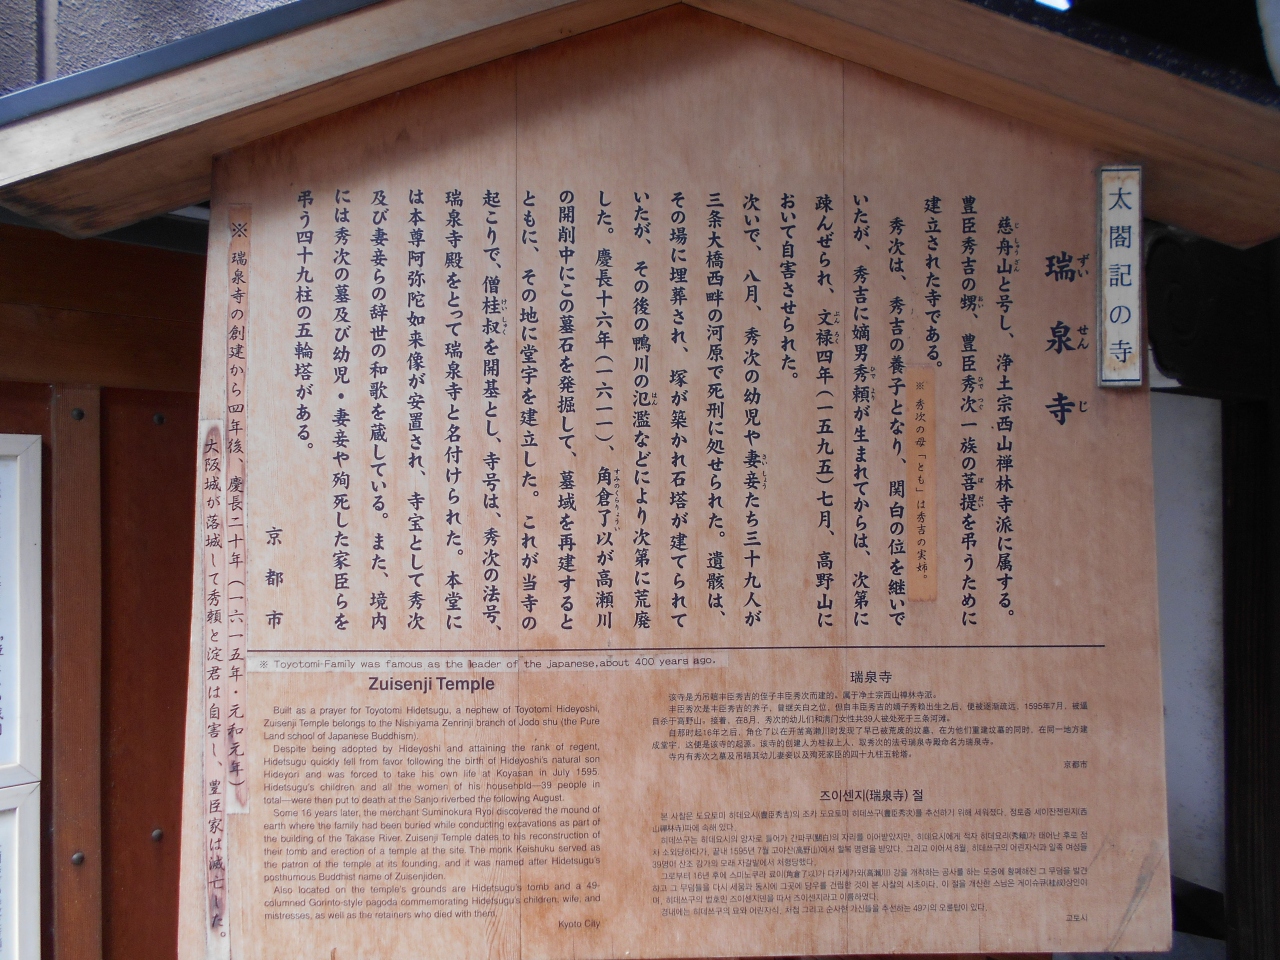 太閤記の寺
瑞泉寺
ずいせんじ
慈舟山と号し、浄土宗西山禅林寺派に属する。
豊臣秀吉の甥、豊臣秀次一族の菩提を弔うために
建立された寺である。
※ 秀次の母「とも」は秀吉の実姉。
秀次は、秀吉の養子となり、関白の位を継いで
いたが、秀吉に嫡男秀頼が生まれてからは、次第に
疎んぜられ、文禄四年(一五九五)七月、高野山に
おいて自害させられた。
次いで、八月、秀次の幼児や妻妾たち三十九人が
三条大橋西畔の河原で死刑に処せられた。遺骸は、
その場に埋葬され、塚が築かれ石塔が建てられて
いたが、その後の鴨川の氾濫などにより次第に荒廃
した。慶長十六年(一六一一)、角倉了以が高瀬川
の開削中にこの墓石を発掘して、墓域を再建すると
ともに、その地に堂宇を建立した。これが当寺の
起こりで、僧桂叔を開基とし、寺号は、秀次の法号、
瑞泉寺殿をとって瑞泉寺と名付けられた。本堂に
は本尊阿弥陀如来像が安置され、寺宝として秀次
及び妻妾らの辞世の和歌を蔵している。また、境内
には秀次の墓及び幼児・妻妾や殉死した家臣らを
弔う四十九柱の五輪塔がある。
京都市
※ 瑞泉寺の創建から四年後、慶長二十年(一六一五年・元和元年)
大阪城が落城して秀頼と淀君は自害し、豊臣家は滅亡した。
※ Toyotomi-Family was famous as the leader of the japanese,about 400 years ago.
Zuisenji Temple
Built as a prayer for Toyotomi Hidetsugu, a nephew of Toyotomi Hideyoshi,
Zuisenji Temple belongs to the Nishiyama Zenrinji branch of Jodo shu (the Pure
Land school of Japanese Buddhism).
Despite being adopted by Hideyoshi and attaining the rank of regent,
Hidetsugu quickly fell from favor following the birth of Hideyoshi's natural son
Hideyori and was forced to take his own life at Koyasan in July 1595.
Hidetsugu's children and all the women of his household—39 people in
total—were then put to death at the Sanjo riverbed the following August.
Some 16 years later, the merchant Suminokura Ryoi discovered the mound of
earth where the family had been buried while conducting excavations as part of
the building of the Takase River. Zuisenji Temple dates to his reconstruction of
their tomb and erection of a temple at the site. The monk Keishuku served as
the patron of the temple at its founding, and it was named after Hidetsugu's
posthumous Buddhist name of Zuisenjiden.
Also located on the temple's grounds are Hidetsugu's tomb and a 49-
columned Gorinto-style pagoda commemorating Hidetsugu's children, wife, and
mistresses, as well as the retainers who died with them.
Kyoto City
瑞泉寺
该寺是为吊唁丰臣秀吉的侄子丰臣秀次而建的。属于净土宗西山禅林寺派。
丰臣秀次是丰臣秀吉的养子，曾继关白之位，但自丰臣秀吉的嫡子秀赖出生之后，便被逐渐疏远，1595年7月，被逼
自杀于高野山。接着，在8月，秀次的幼儿们和满门女性共39人被处死于三条河滩。
自那时起16年之后，角仓了以在开凿高濑川时发现了早已被荒废的坟墓，在为他们重建坟墓的同时，在同一地方建
成堂宇，这便是该寺的起源。该寺的创建人为桂叔上人，取秀次的法号瑞泉寺殿命名为瑞泉寺。
寺内有秀次之墓及吊唁其幼儿妻妾以及殉死家臣的四十九柱五轮塔。
京都市
즈이센지(瑞泉寺) 절
본 사찰은 도요토미 히데요시(豊臣秀吉)의 조카 도요토미 히데쓰구(豊臣秀次)를 추선하기 위해 세워졌다. 정토종 세이잔젠린지(西
山禅林寺)파에 속해 있다.
교토시